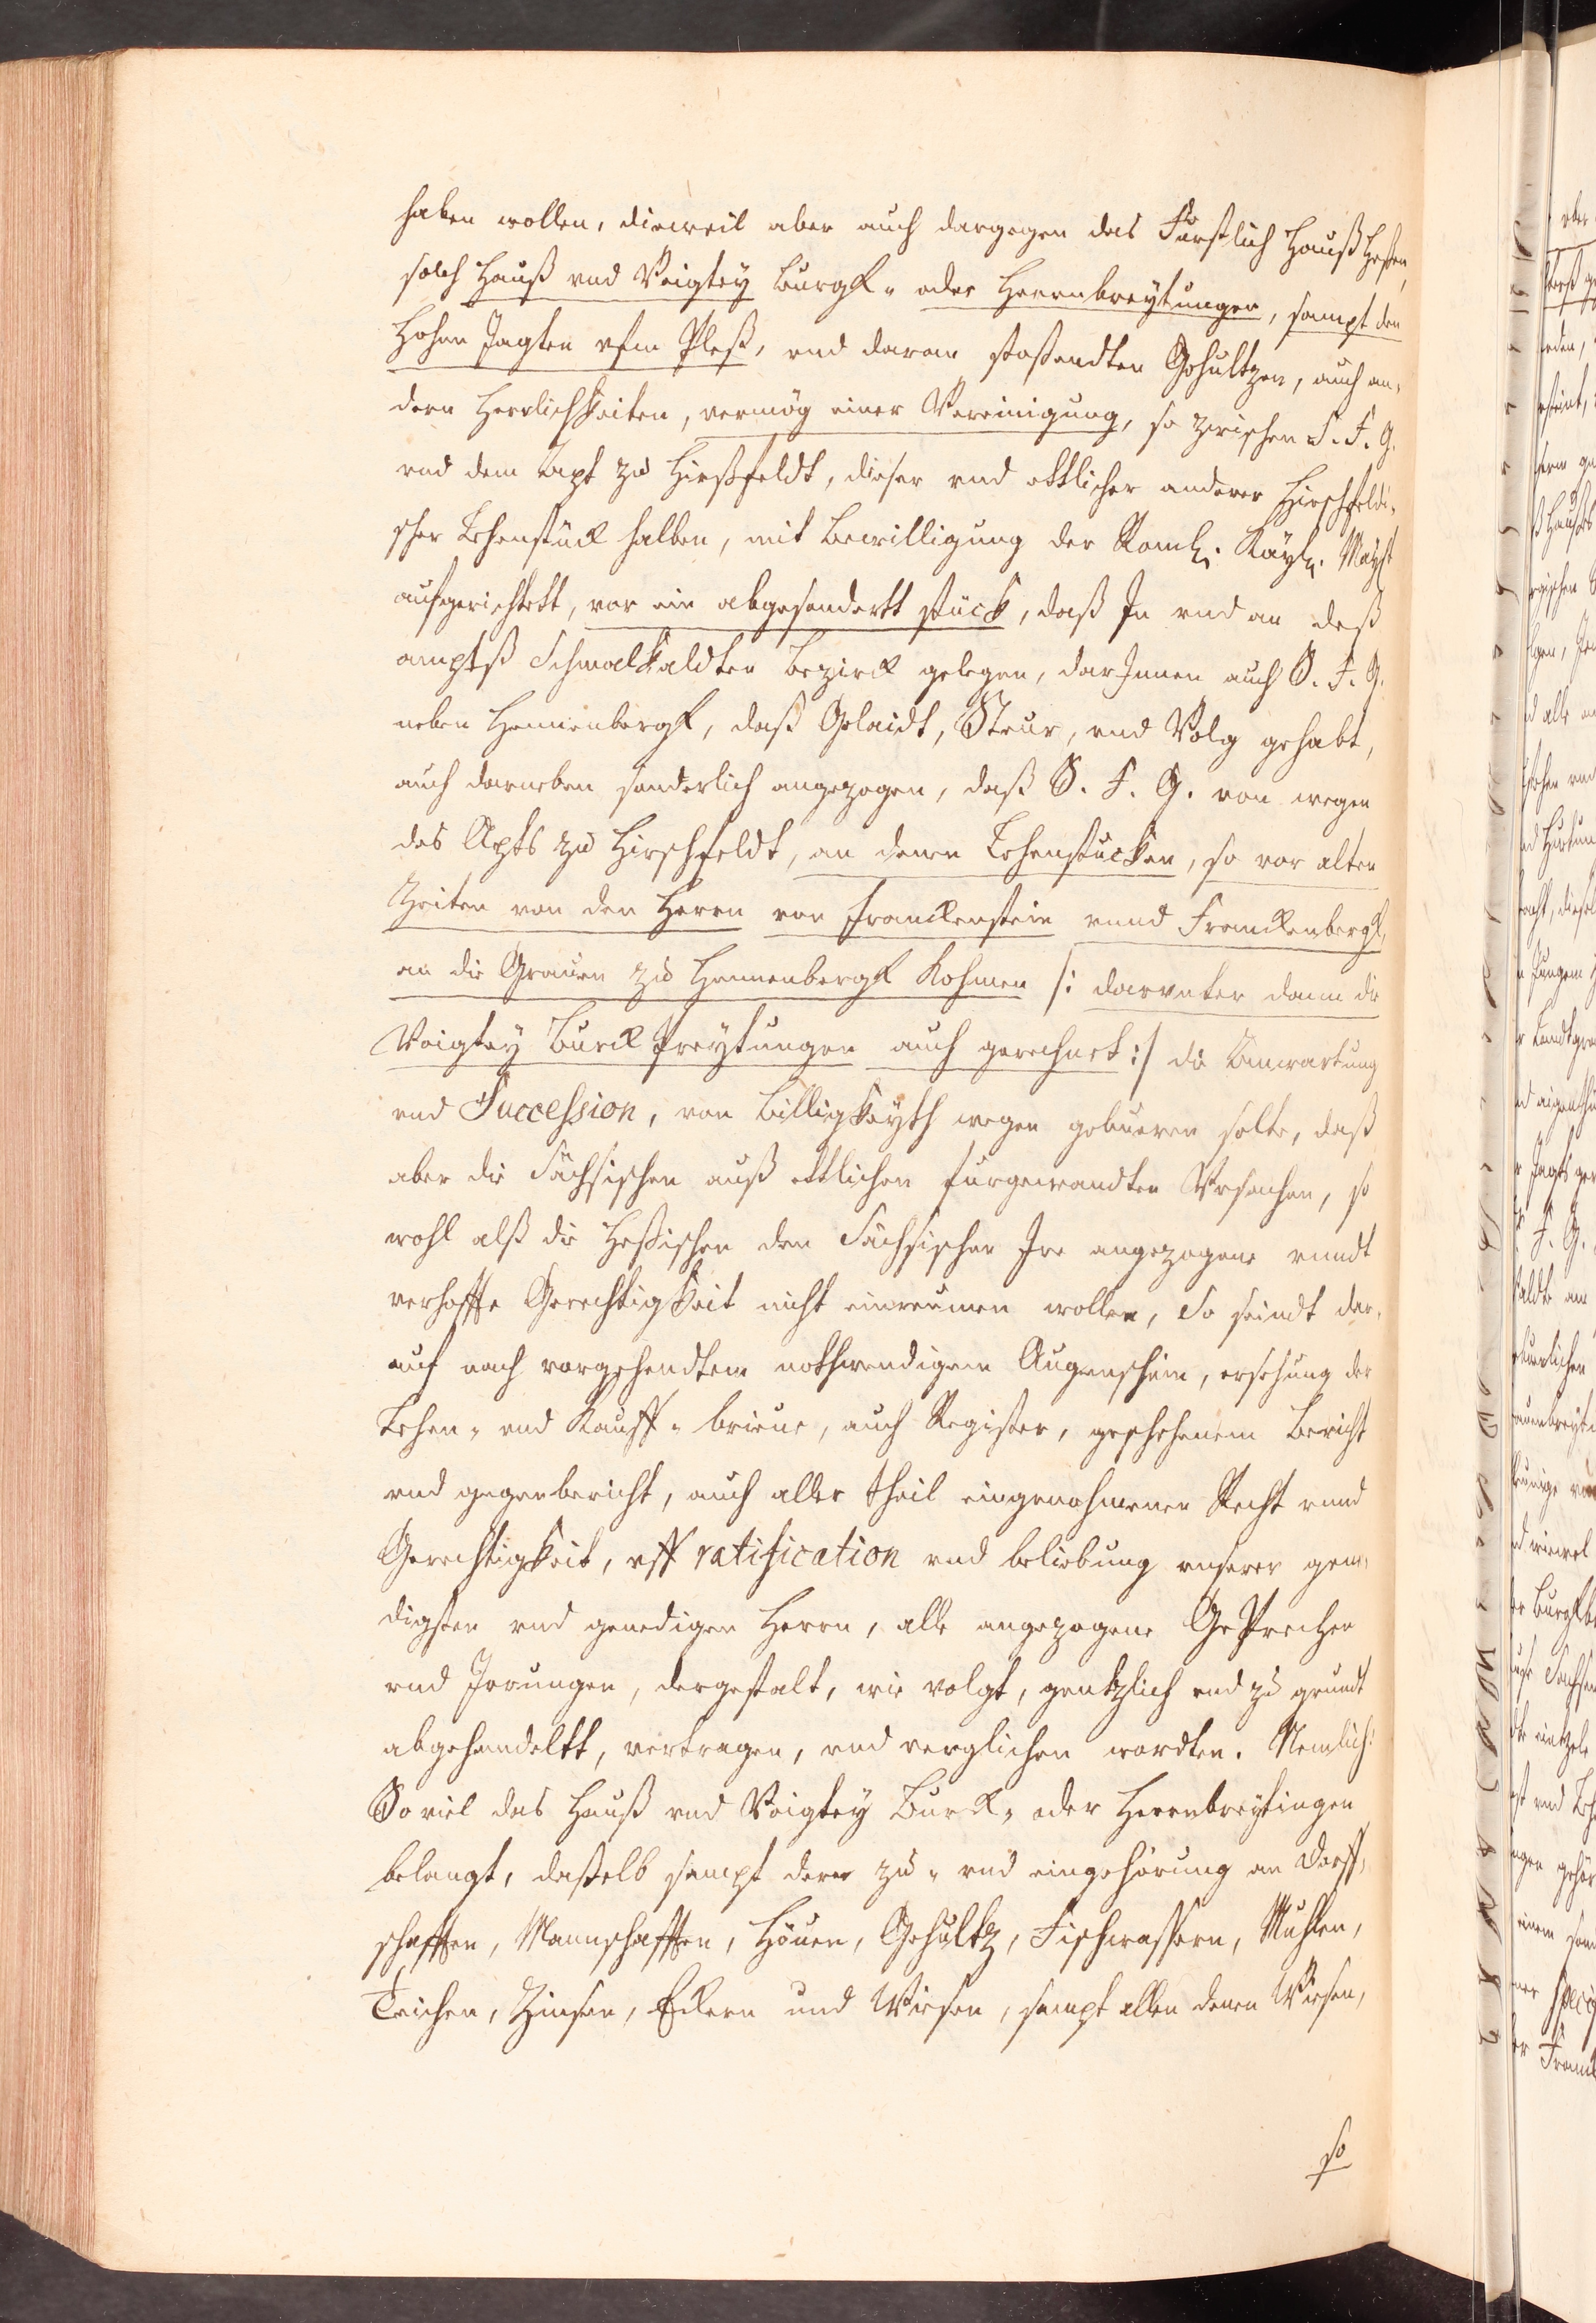 haben wollen, dieweil aber auch dargegen das Fürstlich Hauß Heßen,
solch Hauß vnd Voigtey Burgk- oder Herrnbreytungen, sampt den
Hohen Jagten vfm Pleß, vnd daran stoßendten Gehultzen, auch an-
dern Herrlichkeiten, vermög einer Vereinigung, so zwischen S. F. G.
vnd dem Apt zu Hirßfeldt, dieser vnd ettlicher anderer Hirschfeldi-
scher Lehenstück halben, mit Bewilligung der Röml. Kayl. Mayst
aufgerichtett, vor ein abgesondertt stück, daß In vnd an deß
amptß Schmalkaldten Bezirck gelegen, darInnen auch S. F. G.
neben Hennenbergk, daß Gelaidt, Steur, vnd Volg gehabt,
auch darneben sonderlich angezogen, daß S. F. G. von wegen
des Apts zu Hirschfeldt, an denen Lehenstucken, so vor alten
Zeiten von den Herrn von Franckenstein vnnd Franckenbergk,
an die Grauen zu Hennenbergk kohmen /: darvnter dann die
Voigtey Burckbreytungen auch gerechnet :/ die Anwartung
vnd Succession, von Billigkeyth wegen gebueren solte, daß
aber die Sächsischen auß ettlichen furgewandten Vrsachen, so
wohl alß die Heßischen den Sächsischen Ire angezogene vnndt
verhoffte Gerechtigkeit nicht einreumen wollen, So seindt dar-
auf nach vorgehendtem nothwendigem Augenschein, ersehung der
Lehen- vnd Kauff- brieue, auch Register, geschehenem Bericht
vnd gegenbericht, auch aller theil eingenohmener Recht vnnd
Gerechtigkeit, vff ratification vnd beliebung vnserer gene-
digsten vnd genedigen Herrn, alle angezogene Geprechen
vnd Irrungen, dergestalt, wie volgt, gentzlich vnd zu grundt
abgehandeltt, vertragen, vnd verglichen wordten. Nemlich:
So viel das Hauß vnd Voigtey Burck- oder Herrnbreytingen
belangt, daßelb sampt deren zu- vnd eingehörung an Dorff-
schafften, Mannschafften, Höuen, Gehültz, Fischwassern, Muhlen,
Teichen, Zinsen, Eckern und Wiesen, sampt allen denen Wiesen,
so